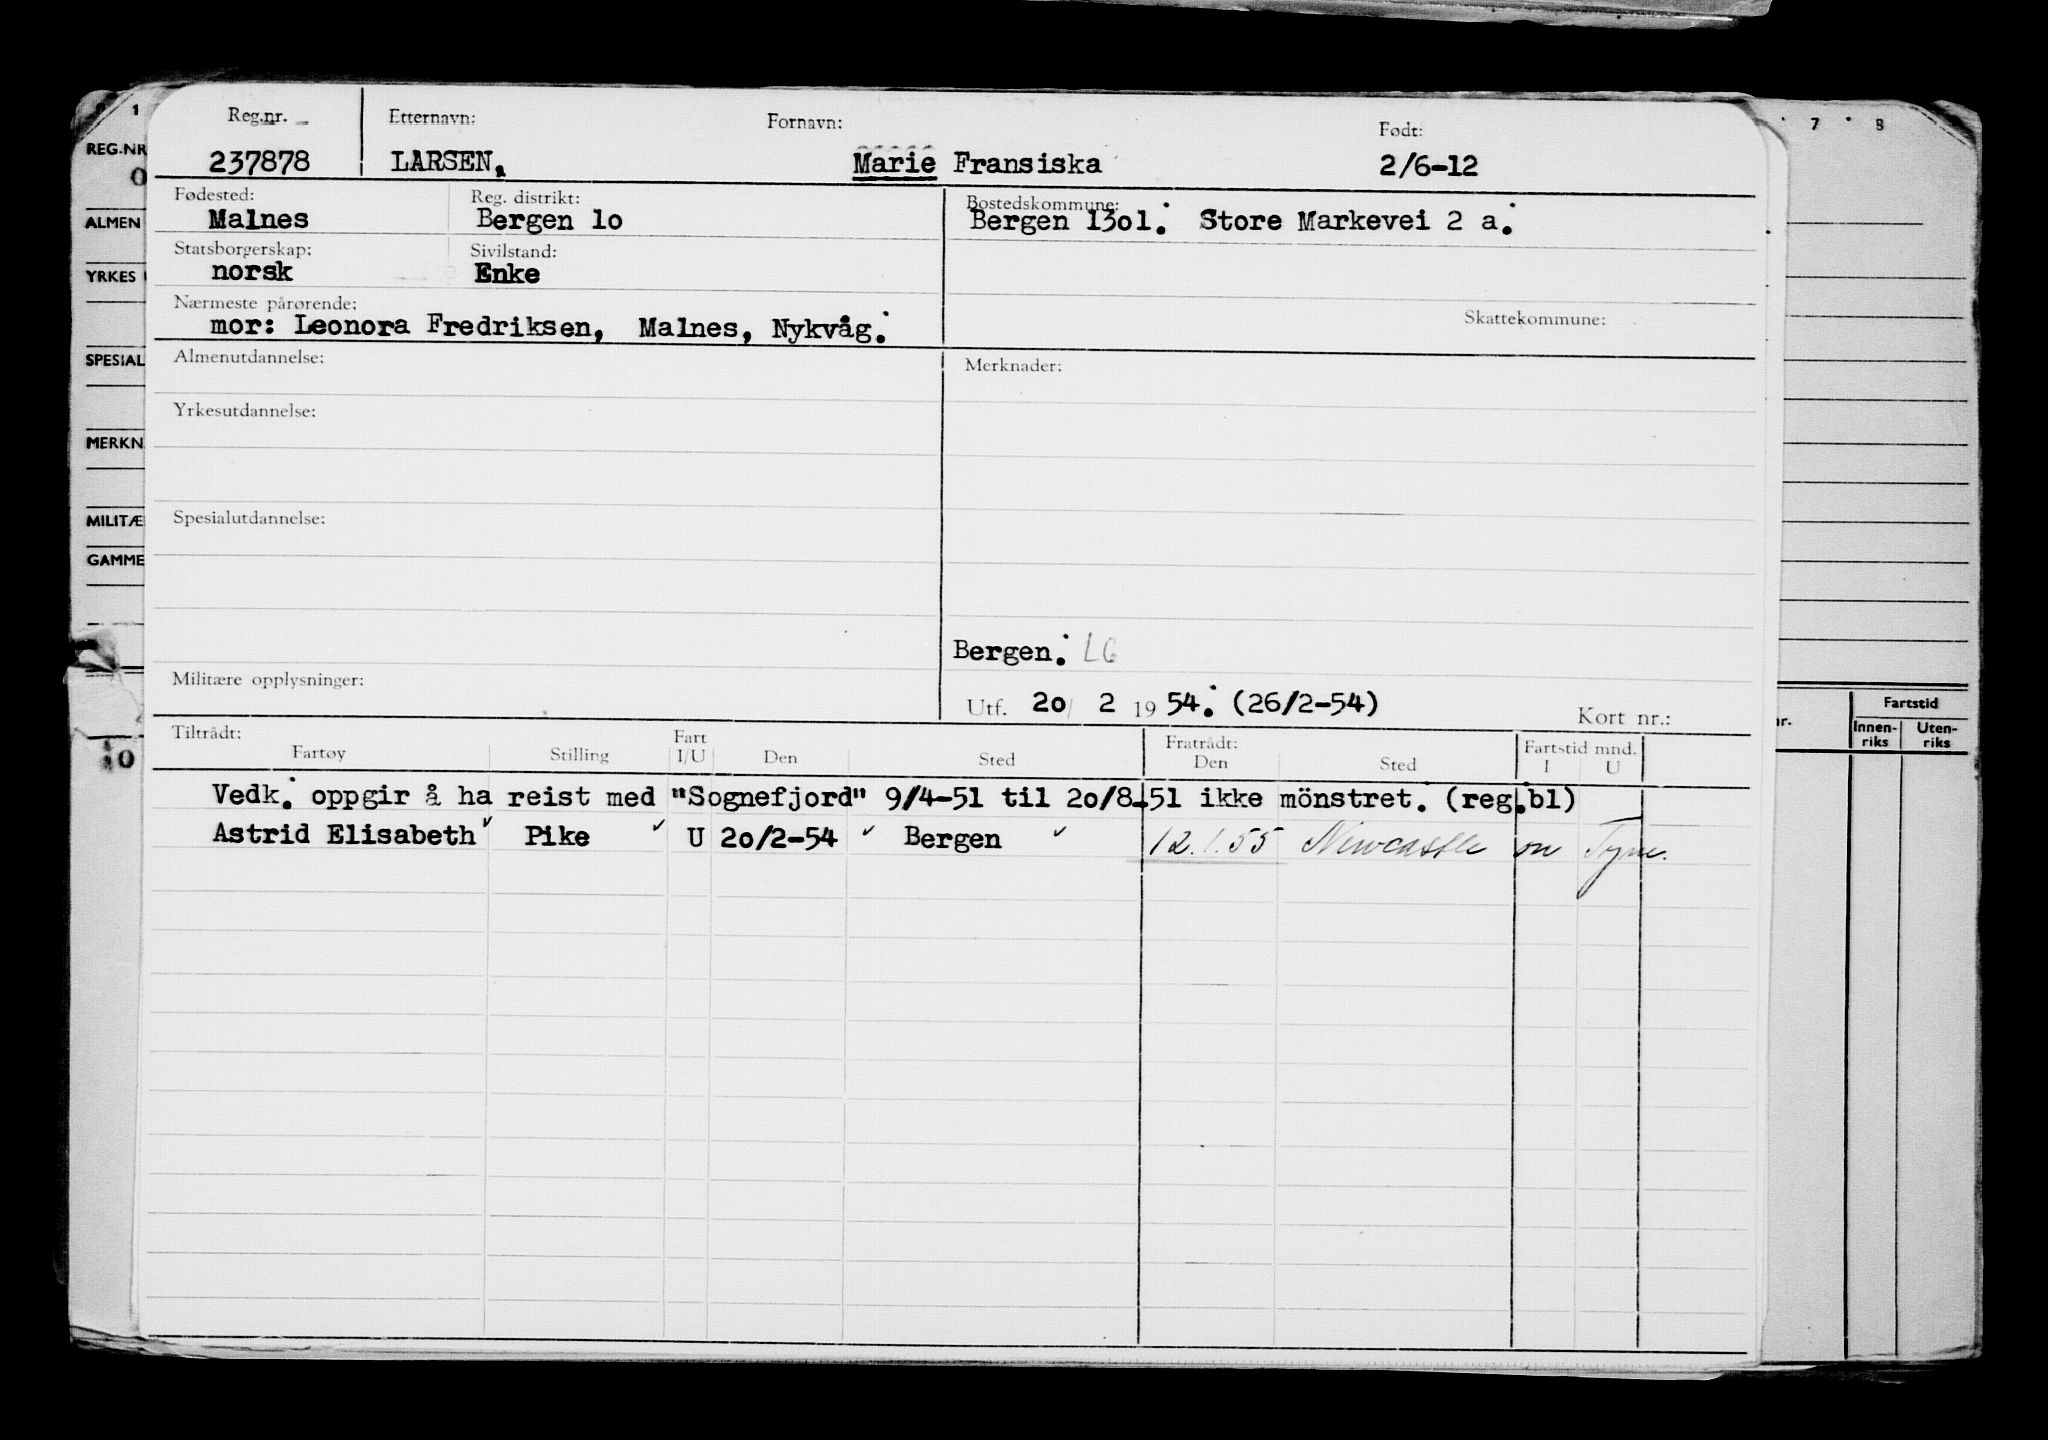 Reg.nr. Etternavn: Fornavn: Født:
237878 LARSEN, Marie Fransiska 2/6-12
Fødested: Reg. distrikt: Bostedskommune:
Malnes Bergen 1o Bergen 13o1. Store Markevei 2 a.
Statsborgerskap: Sivilstand:
norsk Enke
Nærmeste pårørende: Skattekommune:
mor: Leonora Fredriksen, Malnes, Nykvåg.
Almenutdannelse: Merknader:
Yrkesutdannelse:
Spesialutdannelse:
Bergen. LG
Militære opplysninger:
Utf. 2o/ 2 1954. (26/2-54) Kort nr.:
Tiltrådt: Fart Fratrådt: Fartstid mnd.
Fartøy Stilling I/U Den Sted Den Sted I U
Vedk. oppgir å ha reist med "Sognefjord" 9/4-51 til 2o/8-51 ikke mönstret. (reg.bl)
Astrid Elisabeth Pike U 2o/2-54 Bergen 12.1.55 Newcastle on Tyne.
1 7 8
REG.NR
0
ALMEN
YRKES
SPESIAL
MERKN
MILITÆ
GAMME
0
nr. Fartstid
Innen-riks Uten-riks